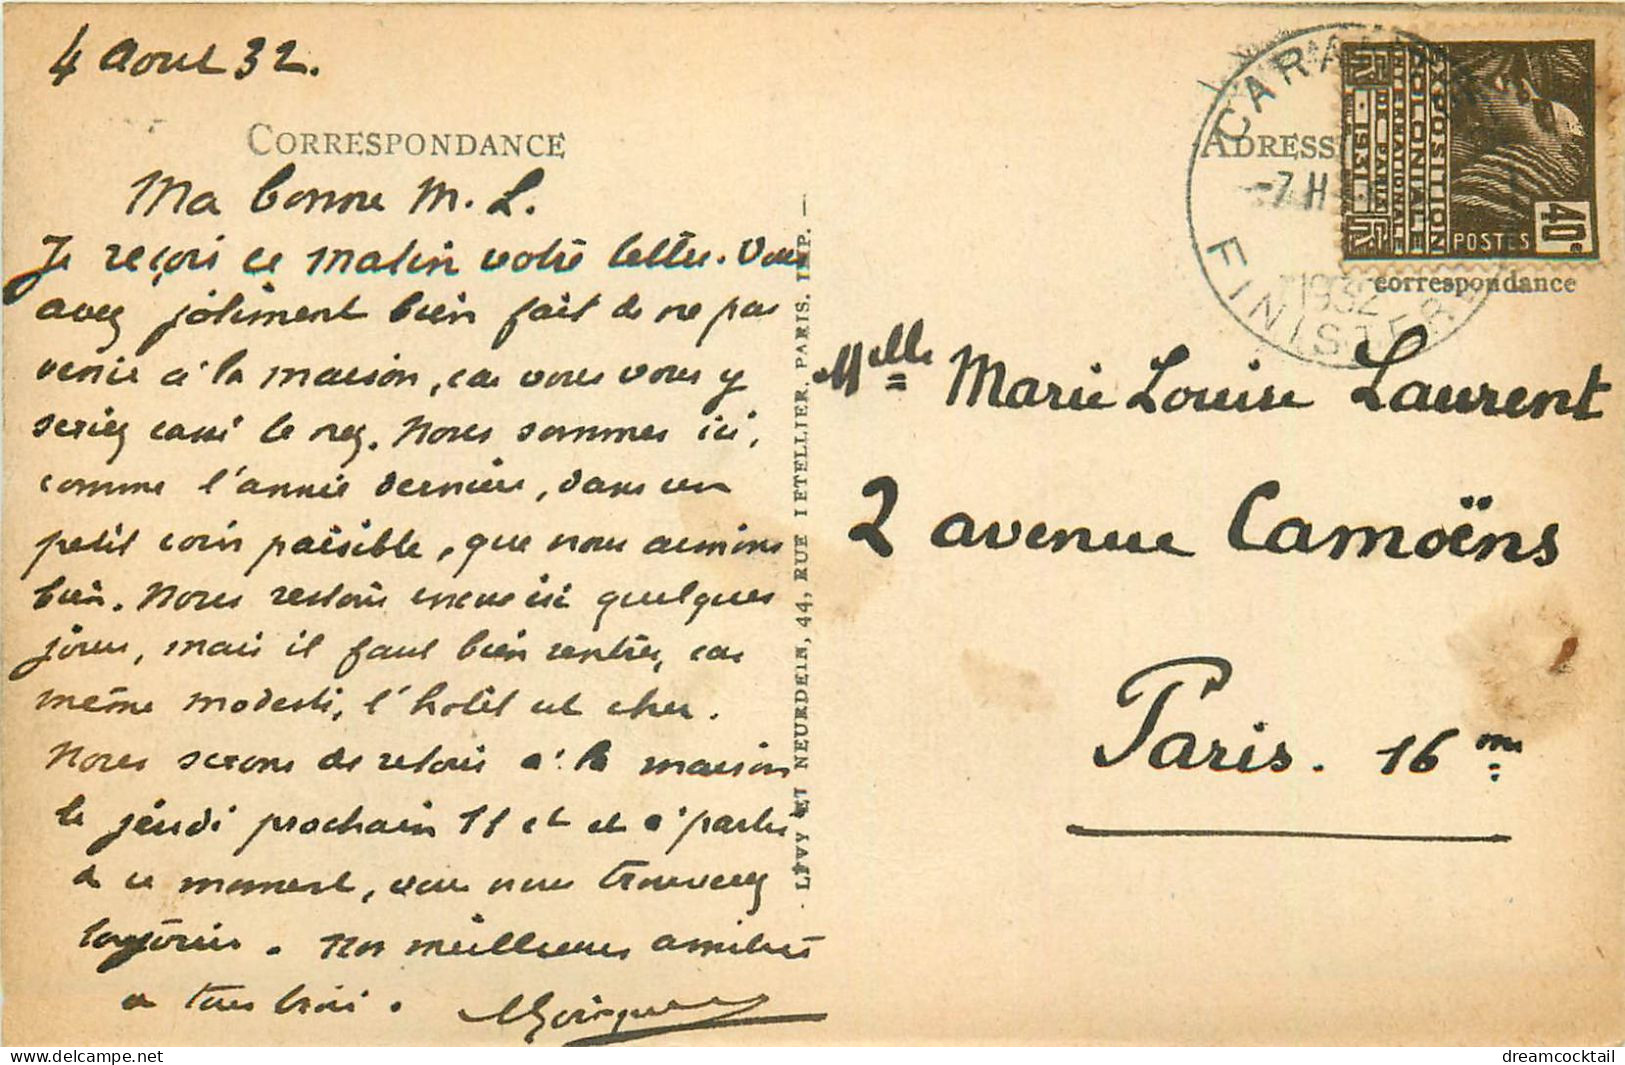 4 Aout 32.
CORRESPONDANCE
Ma bonne M. L.
Je reçois ce matin votre lettre. Vous
avez joliment bien fait de ne pas
venir à la maison, car vous vous y
seriez cassé le nez. Nous sommes ici,
comme l'année dernière, dans un
petit coin paisible, que nous aimons
bien. Nous restons encore ici quelques
jours, mais il faut bien rentrer, car
même modeste, l'hotel est cher.
Nous serons de retour à la maison
le jeudi prochain 11 ct et à partir
de ce moment, vous nous trouverez
toujours. Nos meilleures amitiés
à tous trois.
LÉVY ET NEURDEIN, 44, RUE LETELLIER, PARIS. IMP.
ADRESSE
CARA
-7 H
1932
FINISTERE
EXPOSITION
COLONIALE
INTERNATIONALE
DE PARIS
1931
RF
POSTES
40c
correspondance
Melle Marie Louise Laurent
2 avenue Camoëns
Paris. 16 me
dreamcocktail